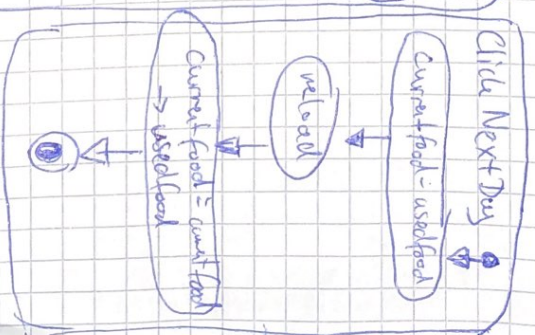 Click Next Day
currentfood = usedfood
reload
currentfood = currentfood
→ usedfood